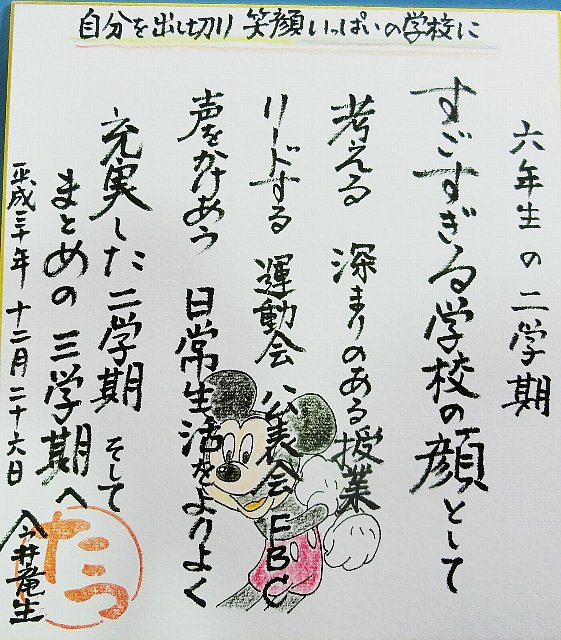 自分を出し切り 笑顔いっぱいの学校に
六年生の二学期
すごすぎる学校の顔として
考える 深まりのある授業
リードする 運動会 公表会 FBC
声をかけあう 日常生活をよりよく
充実した二学期 そして
まとめの三学期へ
平成三十年 十二月二十六日 今井竜生
たつ